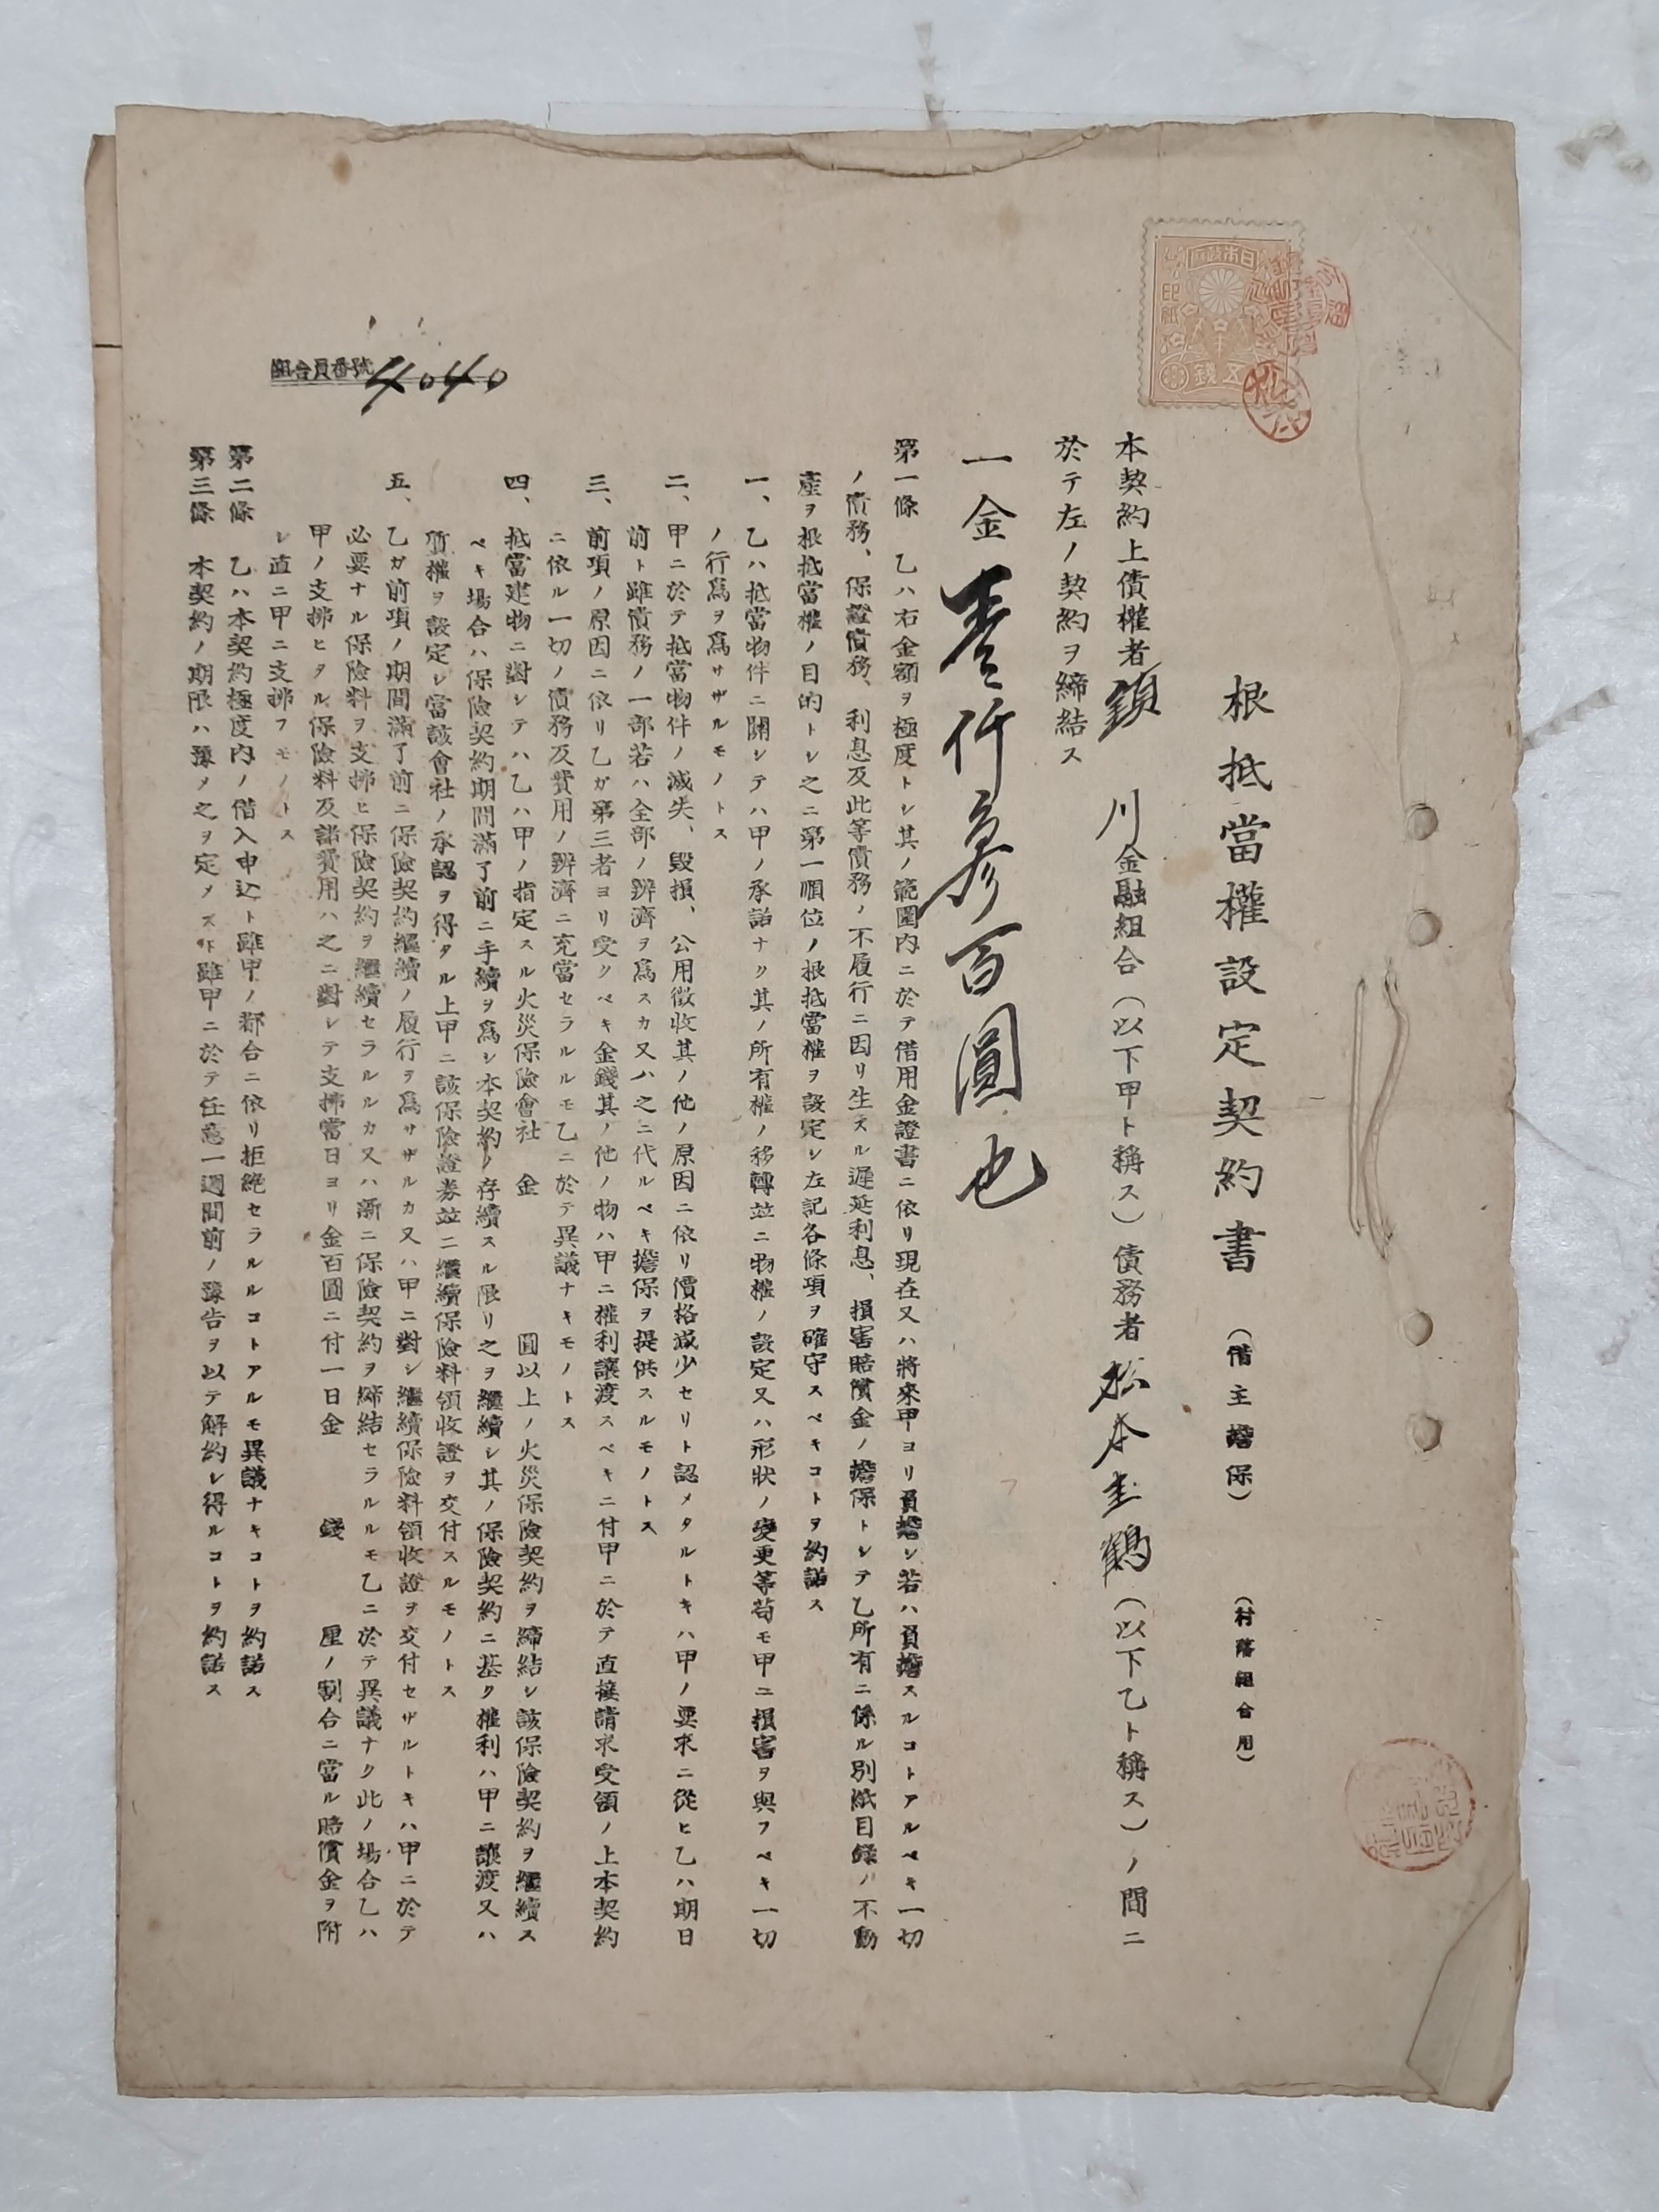 根抵當權設定契約書 (借主擔保) (村落組合用)
本契約上債權者鎮川金融組合(以下甲ト稱ス)債務者松本圭鶴(以下乙ト稱ス)ノ間ニ
於テ左ノ契約ヲ締結ス
一金壹仟參百圓也
第一條 乙ハ右金額ヲ極度トシ其ノ範圍内ニ於テ借用金證書ニ依リ現在又ハ將來甲ヨリ負擔シ若ハ負擔スルコトアルベキ一切
ノ債務、保證債務、利息及此等債務ノ不履行ニ因リ生スル遲延利息、損害賠償金ノ擔保トシテ乙所有ニ係ル別紙目録ノ不動
産ヲ根抵當權ノ目的トシ之ニ第一順位ノ根抵當權ヲ設定シ左記各條項ヲ確守スベキコトヲ約諾ス
一、乙ハ抵當物件ニ關シテハ甲ノ承諾ナク其ノ所有權ノ移轉竝ニ物權ノ設定又ハ形狀ノ變更等苟モ甲ニ損害ヲ與フベキ一切
ノ行爲ヲ爲サザルモノトス
二、甲ニ於テ抵當物件ノ滅失、毀損、公用徴收其ノ他ノ原因ニ依リ價格減少セリト認メタルトキハ甲ノ要求ニ從ヒ乙ハ期日
前ト雖債務ノ一部若ハ全部ノ辨濟ヲ爲スカ又ハ之ニ代ルベキ擔保ヲ提供スルモノトス
三、前項ノ原因ニ依リ乙ガ第三者ヨリ受クベキ金錢其ノ他ノ物ハ甲ニ權利讓渡スベキニ付甲ニ於テ直接請求受領ノ上本契約
ニ依ル一切ノ債務及費用ノ辨濟ニ充當セラルルモ乙ニ於テ異議ナキモノトス
四、抵當建物ニ對シテハ乙ハ甲ノ指定スル火災保險會社 金 圓以上ノ火災保險契約ヲ締結シ該保險契約ヲ繼續ス
ベキ場合ハ保險契約期間滿了前ニ手續ヲ爲シ本契約ノ存續スル限リ之ヲ繼續シ其ノ保險契約ニ基ク權利ハ甲ニ讓渡又ハ
質權ヲ設定シ當該會社ノ承認ヲ得タル上甲ニ該保險證券竝ニ繼續保險料領收證ヲ交付スルモノトス
五、乙ガ前項ノ期間滿了前ニ保險契約繼續ノ履行ヲ爲サザルカ又ハ甲ニ對シ繼續保險料領收證ヲ交付セザルトキハ甲ニ於テ
必要ナル保險料ヲ支拂ヒ保險契約ヲ繼續セラルルカ又ハ新ニ保險契約ヲ締結セラルルモ乙ニ於テ異議ナク此ノ場合乙ハ
甲ノ支拂ヒタル保險料及諸費用ハ之ニ對シテ支拂當日ヨリ金百圓ニ付一日金 錢 厘ノ割合ニ當ル賠償金ヲ附
シ直ニ甲ニ支拂フモノトス
第二條 乙ハ本契約極度内ノ借入申込ト雖甲ノ都合ニ依リ拒絶セラルルコトアルモ異議ナキコトヲ約諾ス
第三條 本契約ノ期限ハ豫メ之ヲ定メズト雖甲ニ於テ任意一週間前ノ豫告ヲ以テ解約シ得ルコトヲ約諾ス
組合員番號 4040
日本政府
五錢